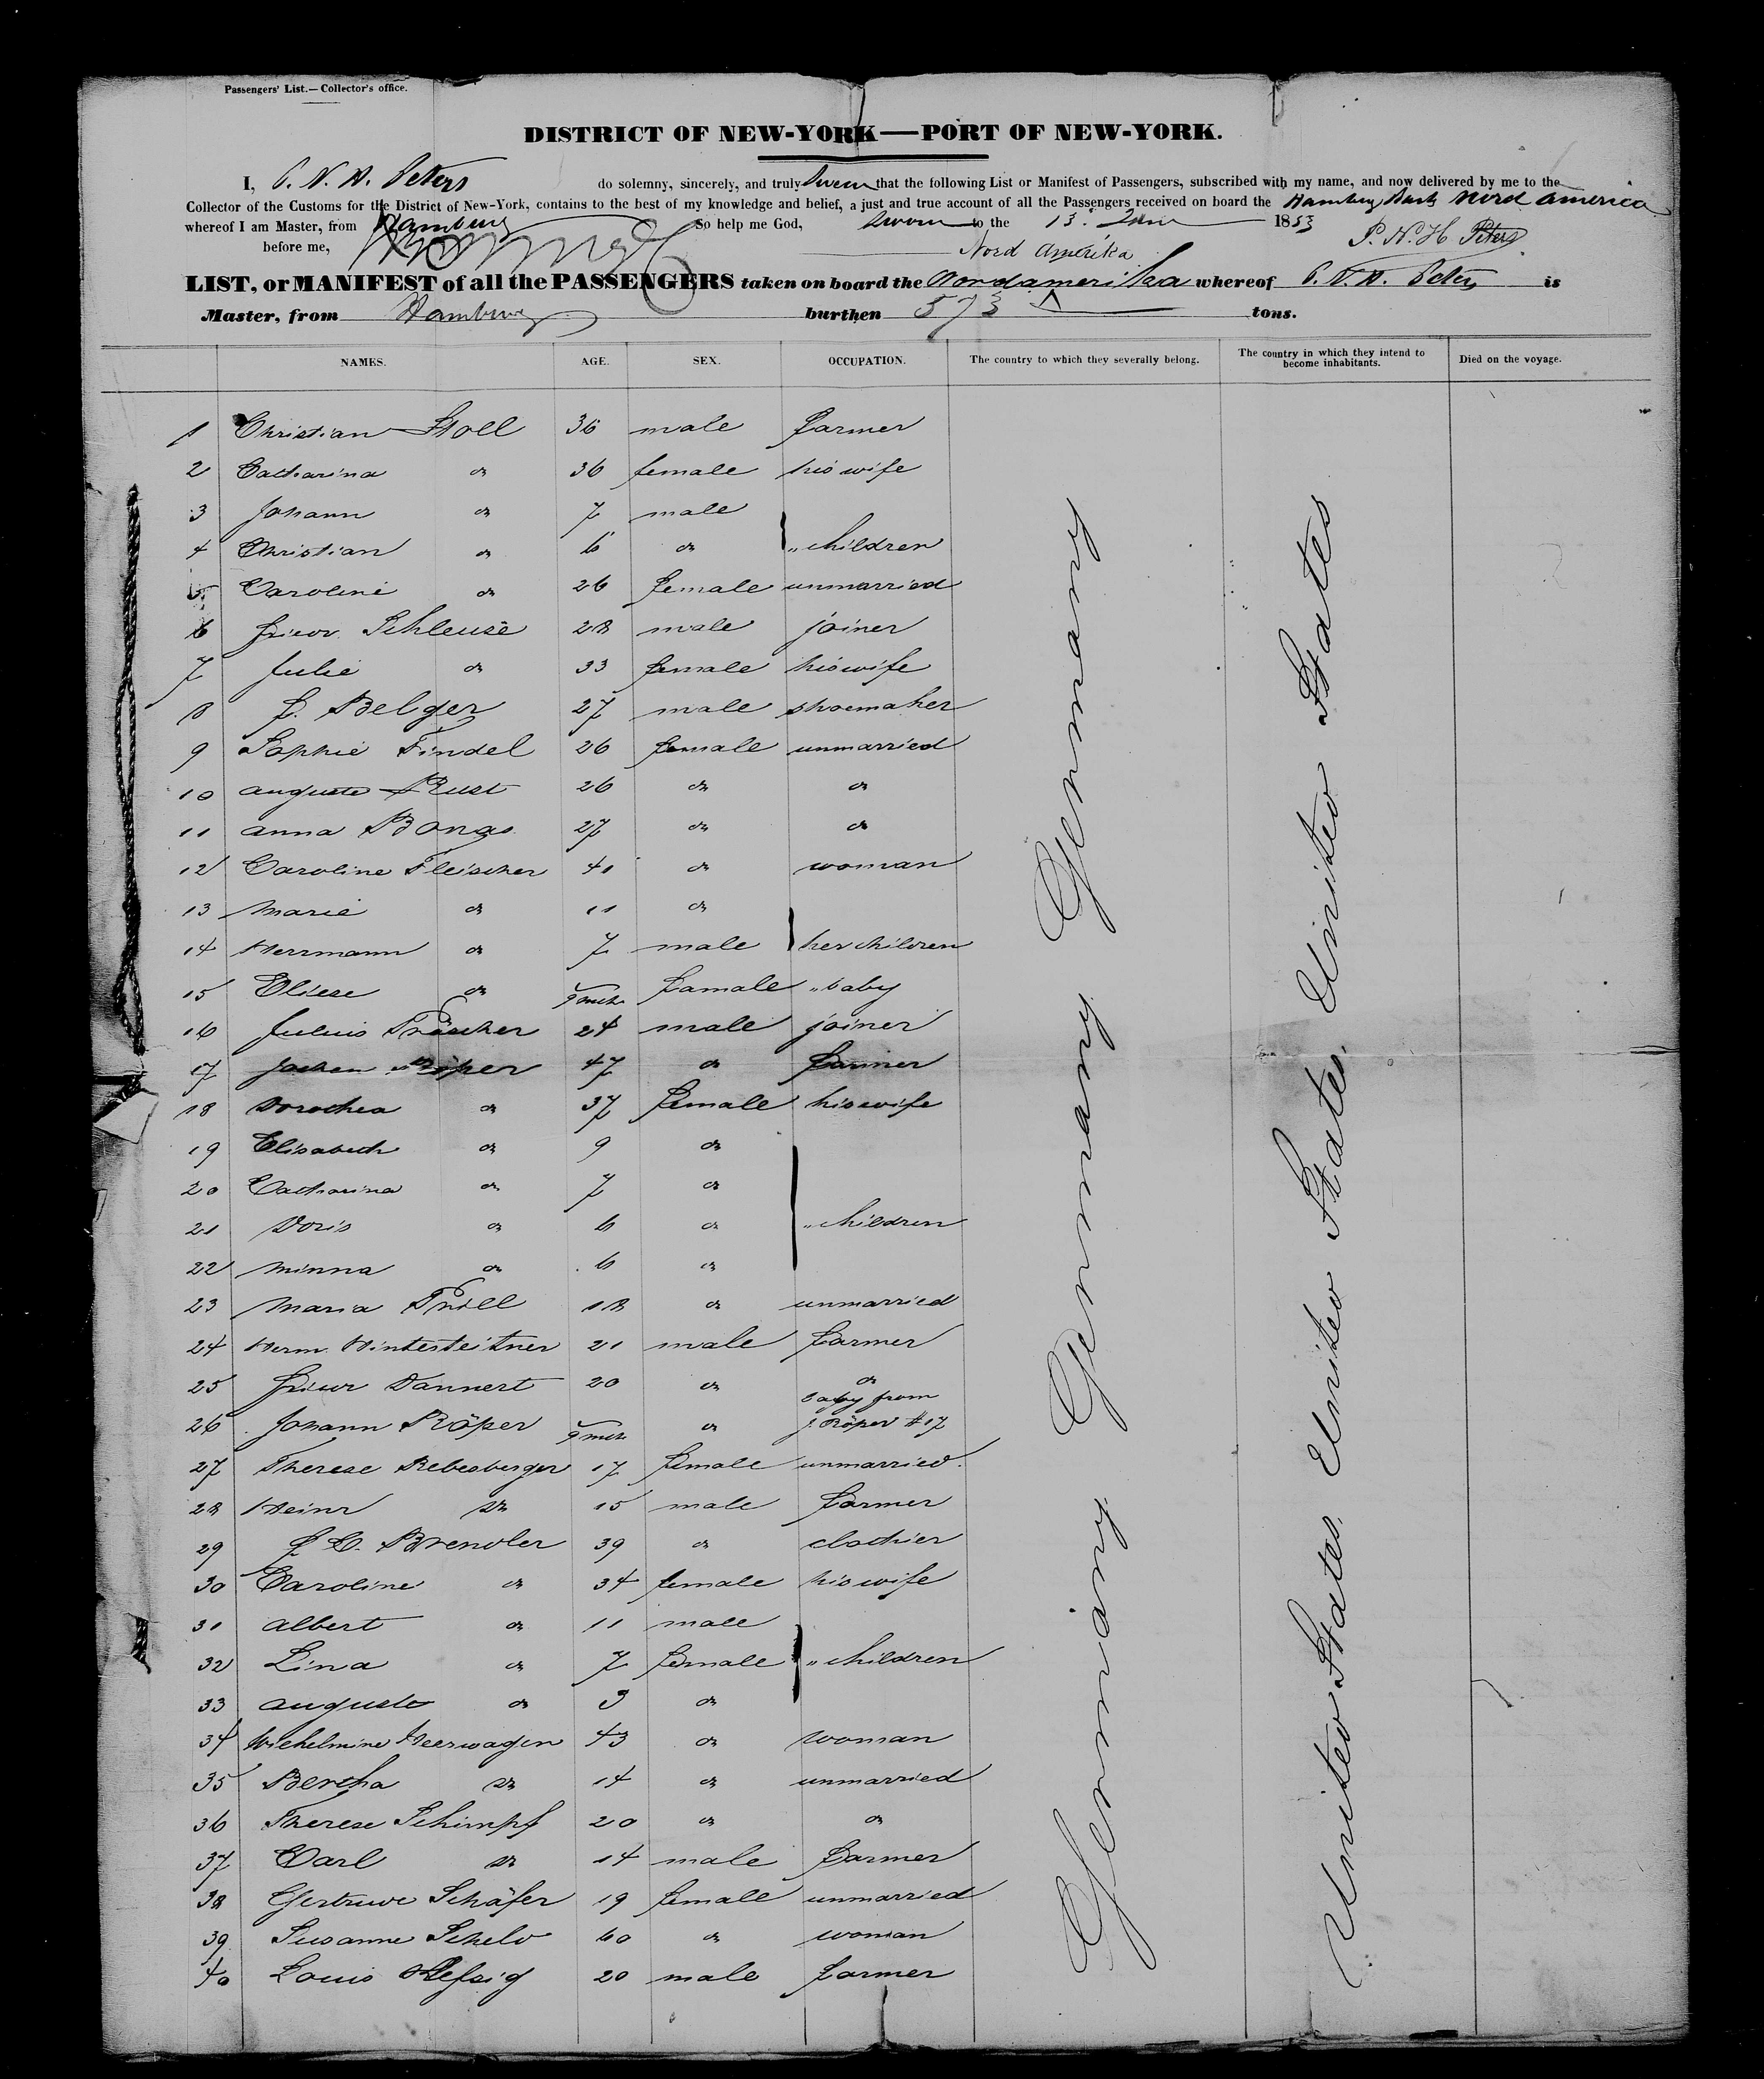 Passengers' List.—Collector's office.
DISTRICT OF NEW-YORK—PORT OF NEW-YORK.
I, P. N. H. Peters do solemny, sincerely, and truly swear that the following List or Manifest of Passengers, subscribed with my name, and now delivered by me to the
Collector of the Customs for the District of New-York, contains to the best of my knowledge and belief, a just and true account of all the Passengers received on board the Hamburg Bark Nord America
whereof I am Master, from Hamburg So help me God, Sworn to the 13. 1853 P. N. H. Peters
before me,
Nord Amerika
LIST, or MANIFEST of all the PASSENGERS taken on board the Nordamerika whereof P. N. H. Peters is
Master, from Hamburg burthen 573 tons.
NAMES. AGE. SEX. OCCUPATION. The country to which they severally belong. The country in which they intend to become inhabitants. Died on the voyage.
1 Christian Stoll 36 male farmer
2 Catharina do 36 female his wife
3 Johann do 7 male
4 Christian do 6 do " children
5 Caroline do 26 female unmarried
6 Friedr. Schleuse 28 male joiner
7 Julie do 33 female his wife
8 F. Belger 27 male shoemaker
9 Sophie Findel 26 female unmarried
10 Auguste Rust 26 do do
11 Anna Bongs 27 do do
12 Caroline Fleischer 41 do woman
13 Marie do 11 do
14 Herrmann do 7 male her children
15 Eliese do 9 mth female " baby
16 Julius Fröscher 24 male joiner
17 Jochen Röper 47 do farmer
18 Dorothea do 37 female his wife
19 Elisabeth do 9 do
20 Catharina do 7 do
21 Doris do 6 do " children
22 Minna do 6 do
23 Maria Prill 18 do unmarried
24 Herm. Hintersteitner 21 male farmer
25 Friedr Dannert 20 do do
26 Johann Röper 9 mth do baby from J. Röper #17
27 Therese Rebesberger 17 female unmarried.
28 Heinr do 15 male farmer
29 F. C. Brendler 39 do clothier
30 Caroline do 34 female his wife
31 Albert do 11 male
32 Lina do 7 female " children
33 Auguste do 3 do
34 Wilhelmine Heerwagen 43 do woman
35 Bertha do 14 do unmarried
36 Therese Schimpf 20 do do
37 Carl do 14 male farmer
38 Gertrude Schäfer 19 female unmarried
39 Susanne Scheld 60 do woman
40 Louis 20 male farmer
Germany Germany Germany
United States, United States, United States